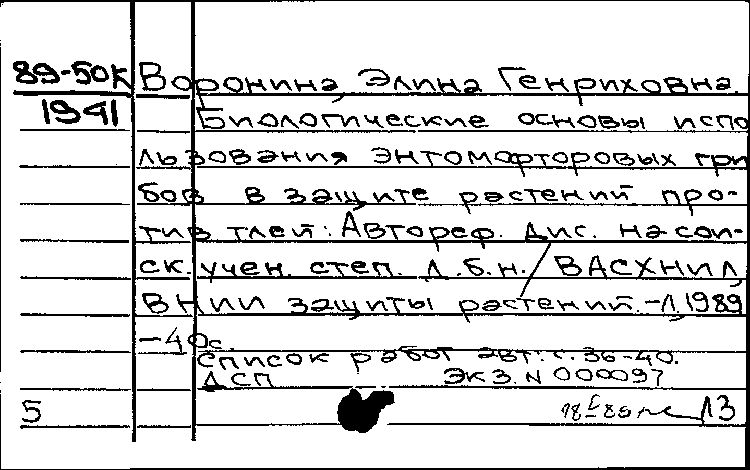 89-50к Воронина, Элина Генриховна.
1941 Биологические основы испо
льзования энтомофторовых гри
бов в защите растений про-
тив тлей: Автореф. дис. на сои-
ск. учен. степ. д.б.н./ ВАСХНИЛ,
ВНИИ защиты растений.-Л,1989
-40с.
Список работ авт.: с. 36-40.
ДСП Экз. N 000097
5 Л3